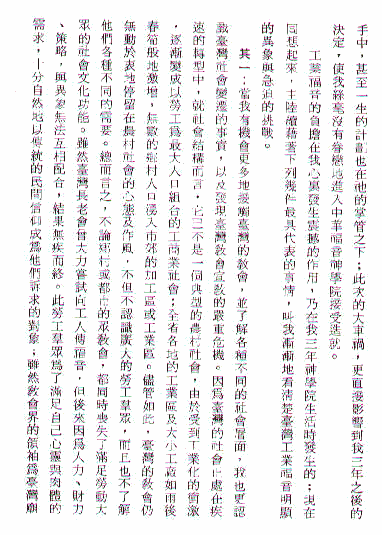 手中，甚至一生的計劃也在祂的掌管之下；此次的大車禍，更直接影響到我三年之後的
決定，使我絲毫沒有眷戀地進入中華福音神學院接受造就。
工業福音的負擔在我心裏發生震撼的作用，乃在我三年神學院生活時發生的；現在
回想起來，主陸續藉著下列幾件最具代表的事情，叫我漸漸地看清楚臺灣工業福音明顯
的異象與急迫的挑戰。
其一：當我有機會更多地接觸臺灣的教會，並了解各種不同的社會層面，我也更認
識臺灣社會變遷的事實，以及發現臺灣教會宣教的嚴重危機。因為臺灣的社會正處在疾
速的轉型中，就社會結構而言，它已不是一個典型的農村社會，由於受到工業化的衝激
，逐漸變成以勞工為最大人口組合的工商業社會；全省各地的工業區及大小工廠如雨後
春筍般地激增，無數的鄉村人口湧入市郊的加工區或工業區。儘管如此，臺灣的教會仍
無動於衷地停留在農村社會的心態及作風，不但不認識廣大的勞工羣眾，而且也不了解
他們各種不同的需要。總而言之，不論鄉村或都市的眾教會，都同時喪失了滿足勞動大
眾的社會文化功能。雖然臺灣長老會曾大力嘗試向工人傳福音，但後來因為人力、財力
、策略，與異象無法互相配合，結果無疾而終。此勞工羣眾為了滿足自己心靈與肉體的
需求，十分自然地以傳統的民間信仰成為他們訴求的對象；雖然教會界的領袖為臺灣廟